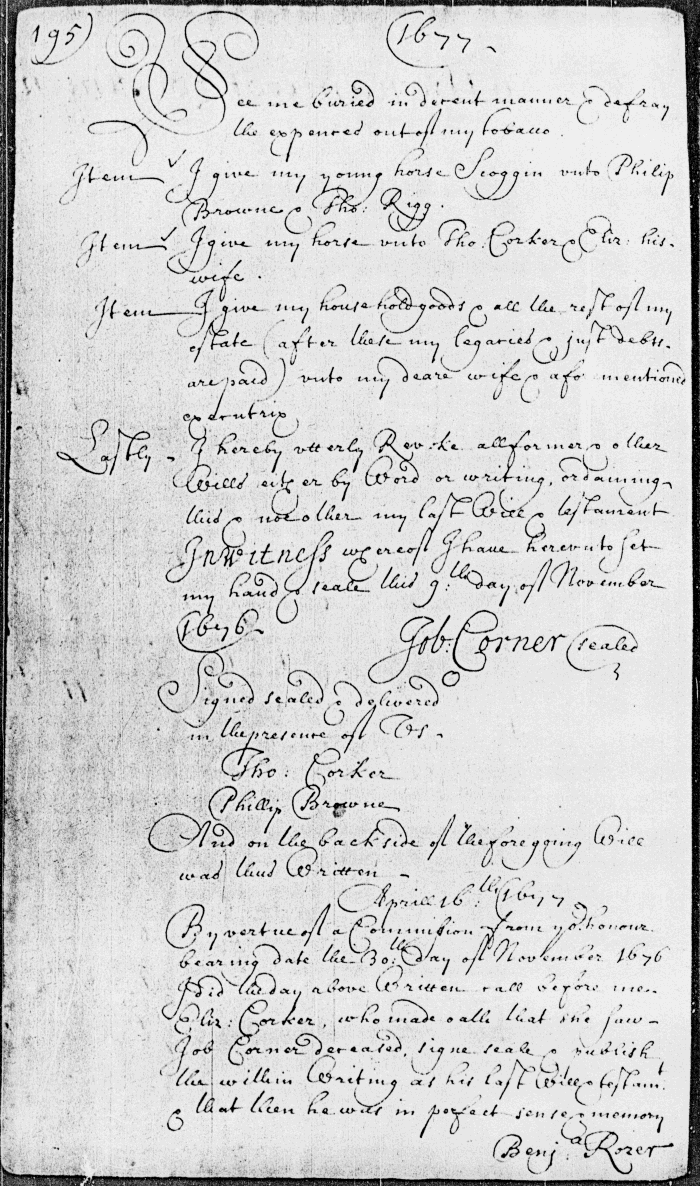 195)
(1677
See me buried in decent manner & defray
the expences out of my tobacco.
Item I give my young horse Scoggin vnto Philip
Browne & Tho: Rigg.
Item I give my horse vnto Tho: Corker & Eliz: his
wife.
Item I give my household goods & all the rest of my
estate (after these my legacies & just debts
are paid) vnto my deare wife & afo mentioned
executrix
Lastly I hereby vtterly Revoke all former & other
Wills either by Word or writing, ordaining
this & noe other my last Will & testament
In Witness whereof I have herevnto set
my hand & seale this 9:th day of November
(1676
Job: Corner (sealed
Signed sealed & delivered
in the presence of Vs
Tho: Corker
Phillip Browne
And on the backside of the foregoing Will
was thus Written
Aprill 16:th (1677
By vertue of a Commission from yo:r honour
bearing date the 30:th day of November 1676
I did the day above Written call before me
Eliz: Corker, who made oath that she saw
Job Corner deceased, signe seale & publish
the within Writing as his last Will & testam:t
& that then he was in perfect sense & memory
Benj:a Rozer